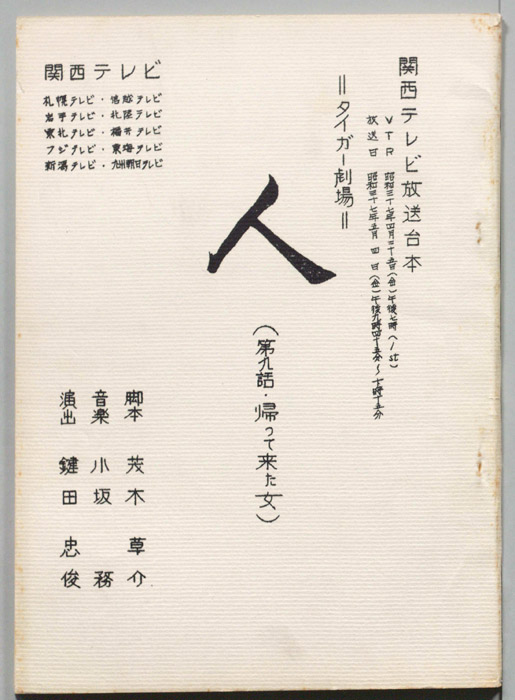 関西テレビ放送台本
VTR 昭和三十七年四月二十五日(金)午後七時(1st)
放送日 昭和三十七年五月四日(金)午後九時四十五分〜十時十五分
＝タイガー劇場＝
人
(第九話・帰って来た女)
脚本 茂木草介
音楽 小坂務
演出 鍵田忠俊
関西テレビ
札幌テレビ・信越テレビ
岩手テレビ・北陸テレビ
東北テレビ・福井テレビ
フジテレビ・東海テレビ
新潟テレビ・九州朝日テレビ